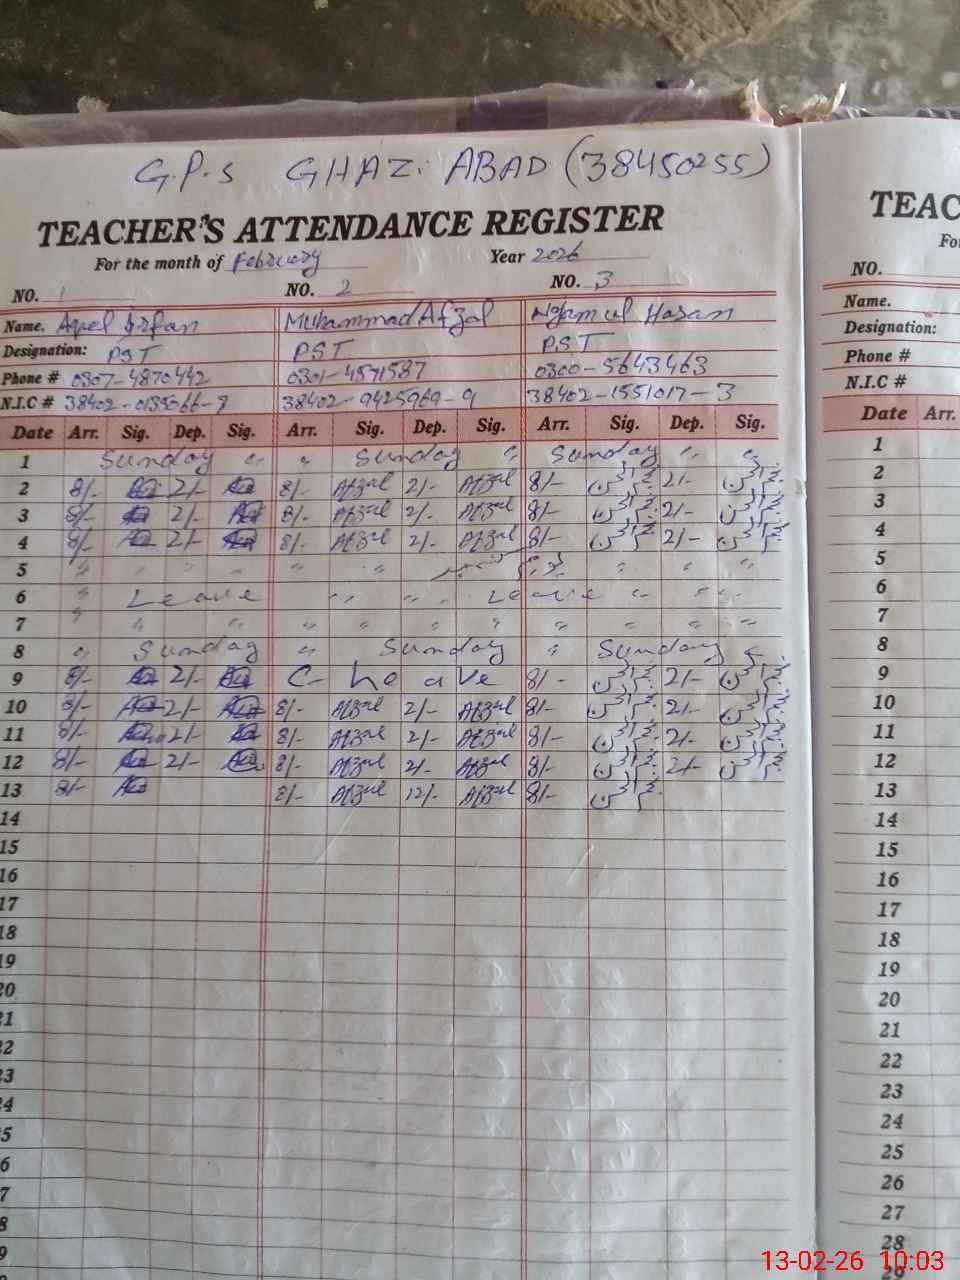 G.P.S GHAZI ABAD (38450255)
TEACHER'S ATTENDANCE REGISTER
For the month of February Year 2026
NO. 1 NO. 2 NO. 3
Name. Irfan Muhammad Afzal Hasan
Designation: PST PST PST
Phone # 0307-4870442 0301-4571587 0300-5643463
N.I.C # 38402-0135066-9 38402-9425969-9 38402-1551017-3
Date Arr. Sig. Dep. Sig. Arr. Sig. Dep. Sig. Arr. Sig. Dep. Sig.
1 Sunday " " Sunday " Sunday " "
2 8/- 2/- 8/- Afzal 2/- Afzal 8/- 2/-
3 8/- 2/- 8/- Afzal 2/- Afzal 8/- 2/-
4 8/- 2/- 8/- Afzal 2/- Afzal 8/- 2/-
5 " " " " " " " " "
6 " Leave " " " Leave " " "
7 " " " " " " " " " "
8 " Sunday " Sunday " Sunday "
9 8/- 2/- C- Leave 8/- 2/-
10 8/- 2/- 8/- Afzal 2/- Afzal 8/- 2/-
11 8/- 2/- 8/- Afzal 2/- Afzal 8/- 2/-
12 8/- 2/- 8/- Afzal 2/- Afzal 8/- 2/-
13 8/- 8/- Afzal 12/- Afzal 8/-
14
15
16
17
18
19
20
21
22
23
24
25
26
27
28
29
TEAC
Fo
NO.
Name.
Designation:
Phone #
N.I.C #
Date Arr.
1
2
3
4
5
6
7
8
9
10
11
12
13
14
15
16
17
18
19
20
21
22
23
24
25
26
27
28
29
13-02-26 10:03